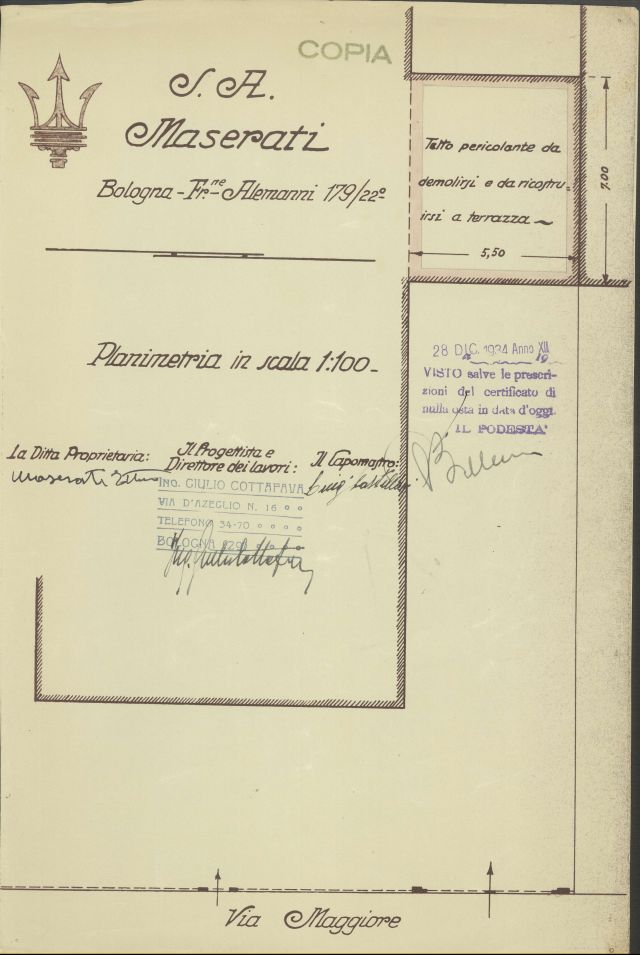 COPIA
S. A.
Maserati
Bologna - Fr.ne - Alemanni 179/22º
Tetto pericolante da
demolirsi e da ricostru-
irsi a terrazza ~
5,50
7.00
Planimetria in scala 1:100 -
28 DIC. 1934 Anno XII
19
VISTO salve le prescri-
zioni del certificato di
nulla osta in data d'oggi.
IL PODESTA'
La Ditta Proprietaria:
Il Progettista e
Direttore dei lavori:
Il Capomastro:
Maserati
Luigi
ING. GIULIO COTTAFAVA
VIA D'AZEGLIO N. 16
TELEFONO 34-70
BOLOGNA
Via Maggiore